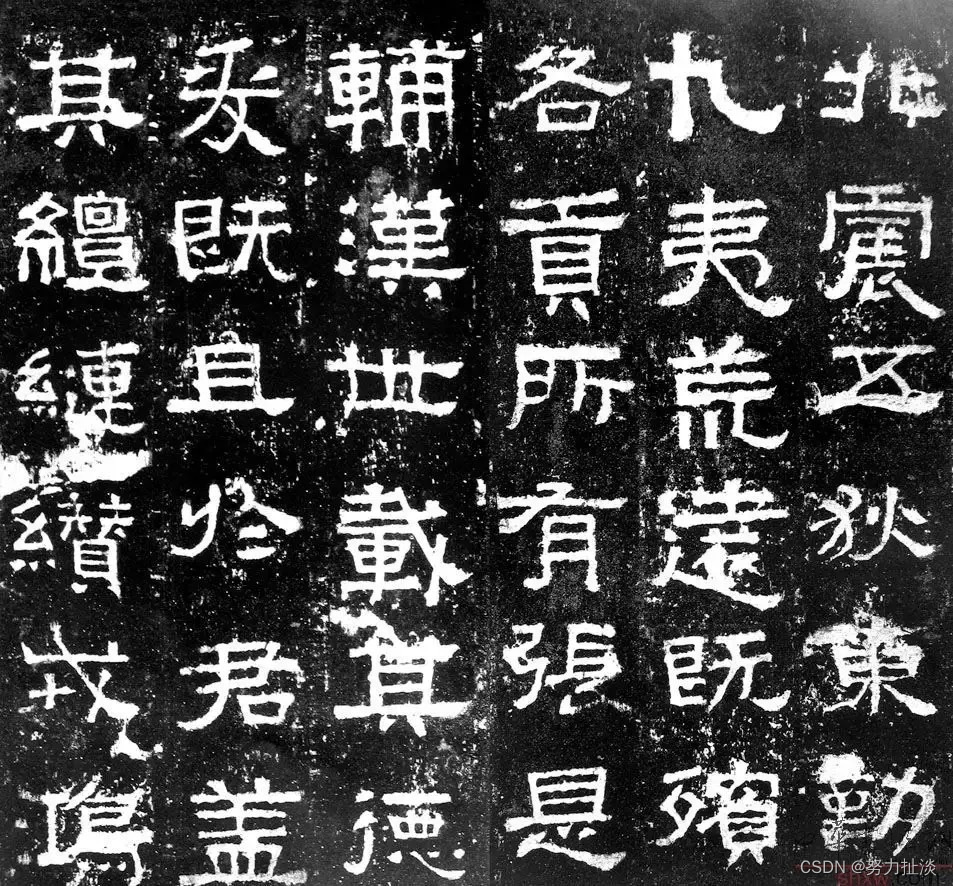 北震五狄東勤
九夷荒遠既殯
各貢所有張是
輔漢世載其德
爰既且於君盖
其纘縺纘戎鴻
CSDN @努力扯淡